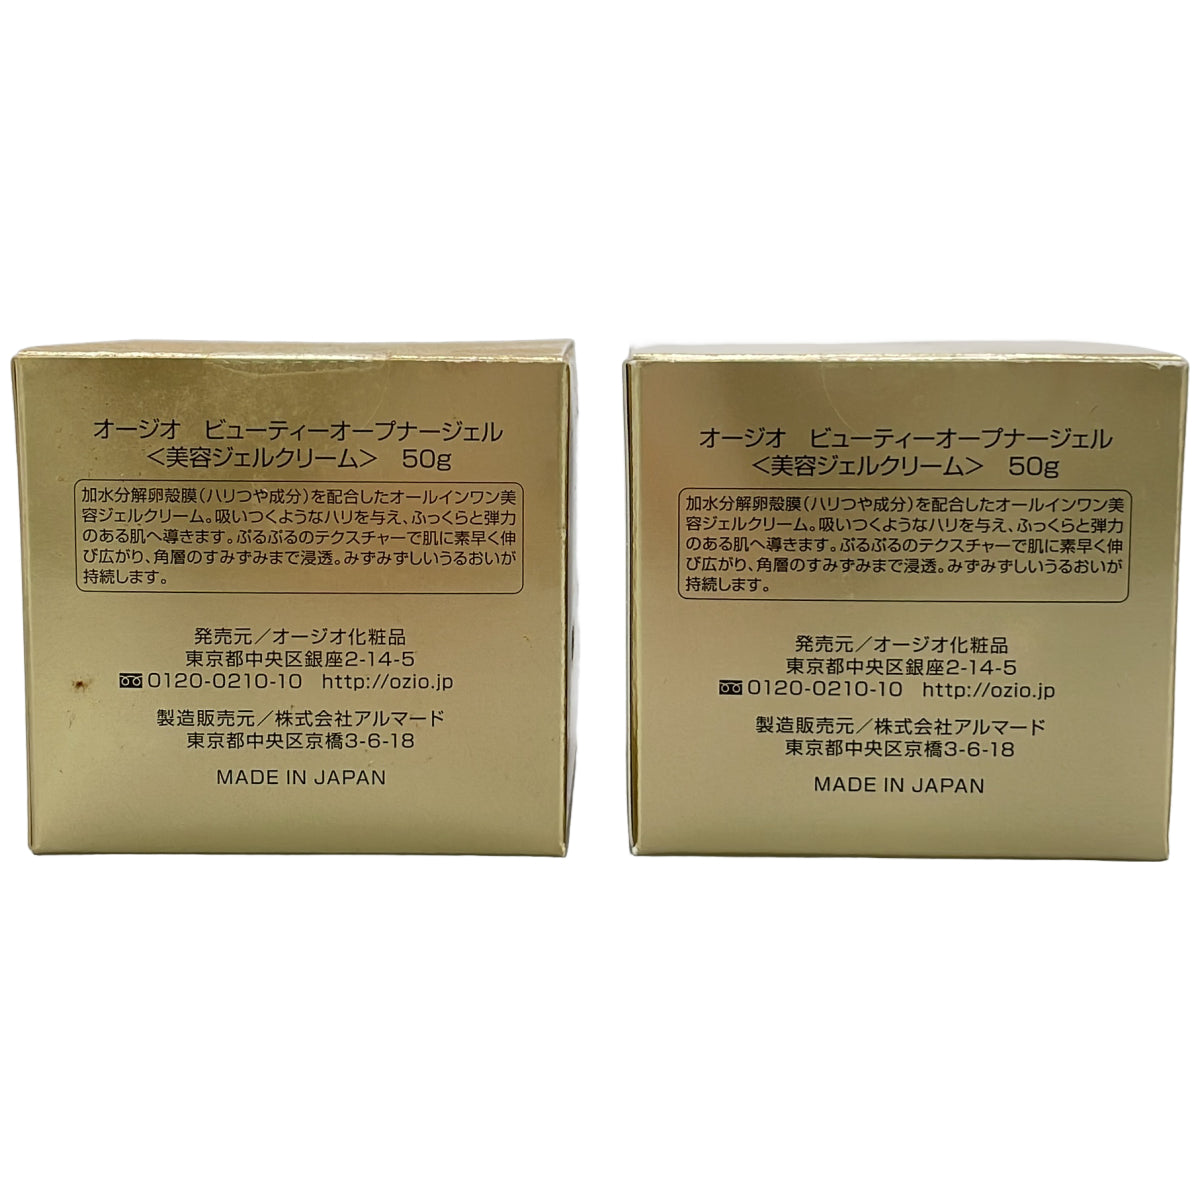 オージオ ビューティーオープナージェル
<美容ジェルクリーム> 50g
加水分解卵殻膜(ハリつや成分)を配合したオールインワン美
容ジェルクリーム。吸いつくようなハリを与え、ふっくらと弾力
のある肌へ導きます。ぷるぷるのテクスチャーで肌に素早く伸
び広がり、角層のすみずみまで浸透。みずみずしいうるおいが
持続します。
発売元/オージオ化粧品
東京都中央区銀座2-14-5
0120-0210-10 http://ozio.jp
製造販売元/株式会社アルマード
東京都中央区京橋3-6-18
MADE IN JAPAN
オージオ ビューティーオープナージェル
<美容ジェルクリーム> 50g
加水分解卵殻膜(ハリつや成分)を配合したオールインワン美
容ジェルクリーム。吸いつくようなハリを与え、ふっくらと弾力
のある肌へ導きます。ぷるぷるのテクスチャーで肌に素早く伸
び広がり、角層のすみずみまで浸透。みずみずしいうるおいが
持続します。
発売元/オージオ化粧品
東京都中央区銀座2-14-5
0120-0210-10 http://ozio.jp
製造販売元/株式会社アルマード
東京都中央区京橋3-6-18
MADE IN JAPAN